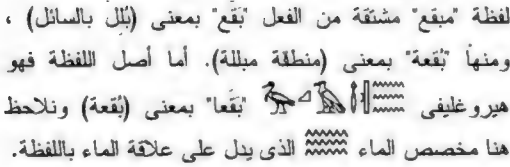 لفظة "مبقع" مشتقة من الفعل "بَقَّع" بمعنى (بُلِّل بالسائل) ،
ومنها "بُقعة" بمعنى (منطقة مبللة). أما أصل اللفظة فهو
هيروغليفى "بَقَعا" بمعنى (بُقعة) ونلاحظ
هنا مخصص الماء الذى يدل على علاقة الماء باللفظة.